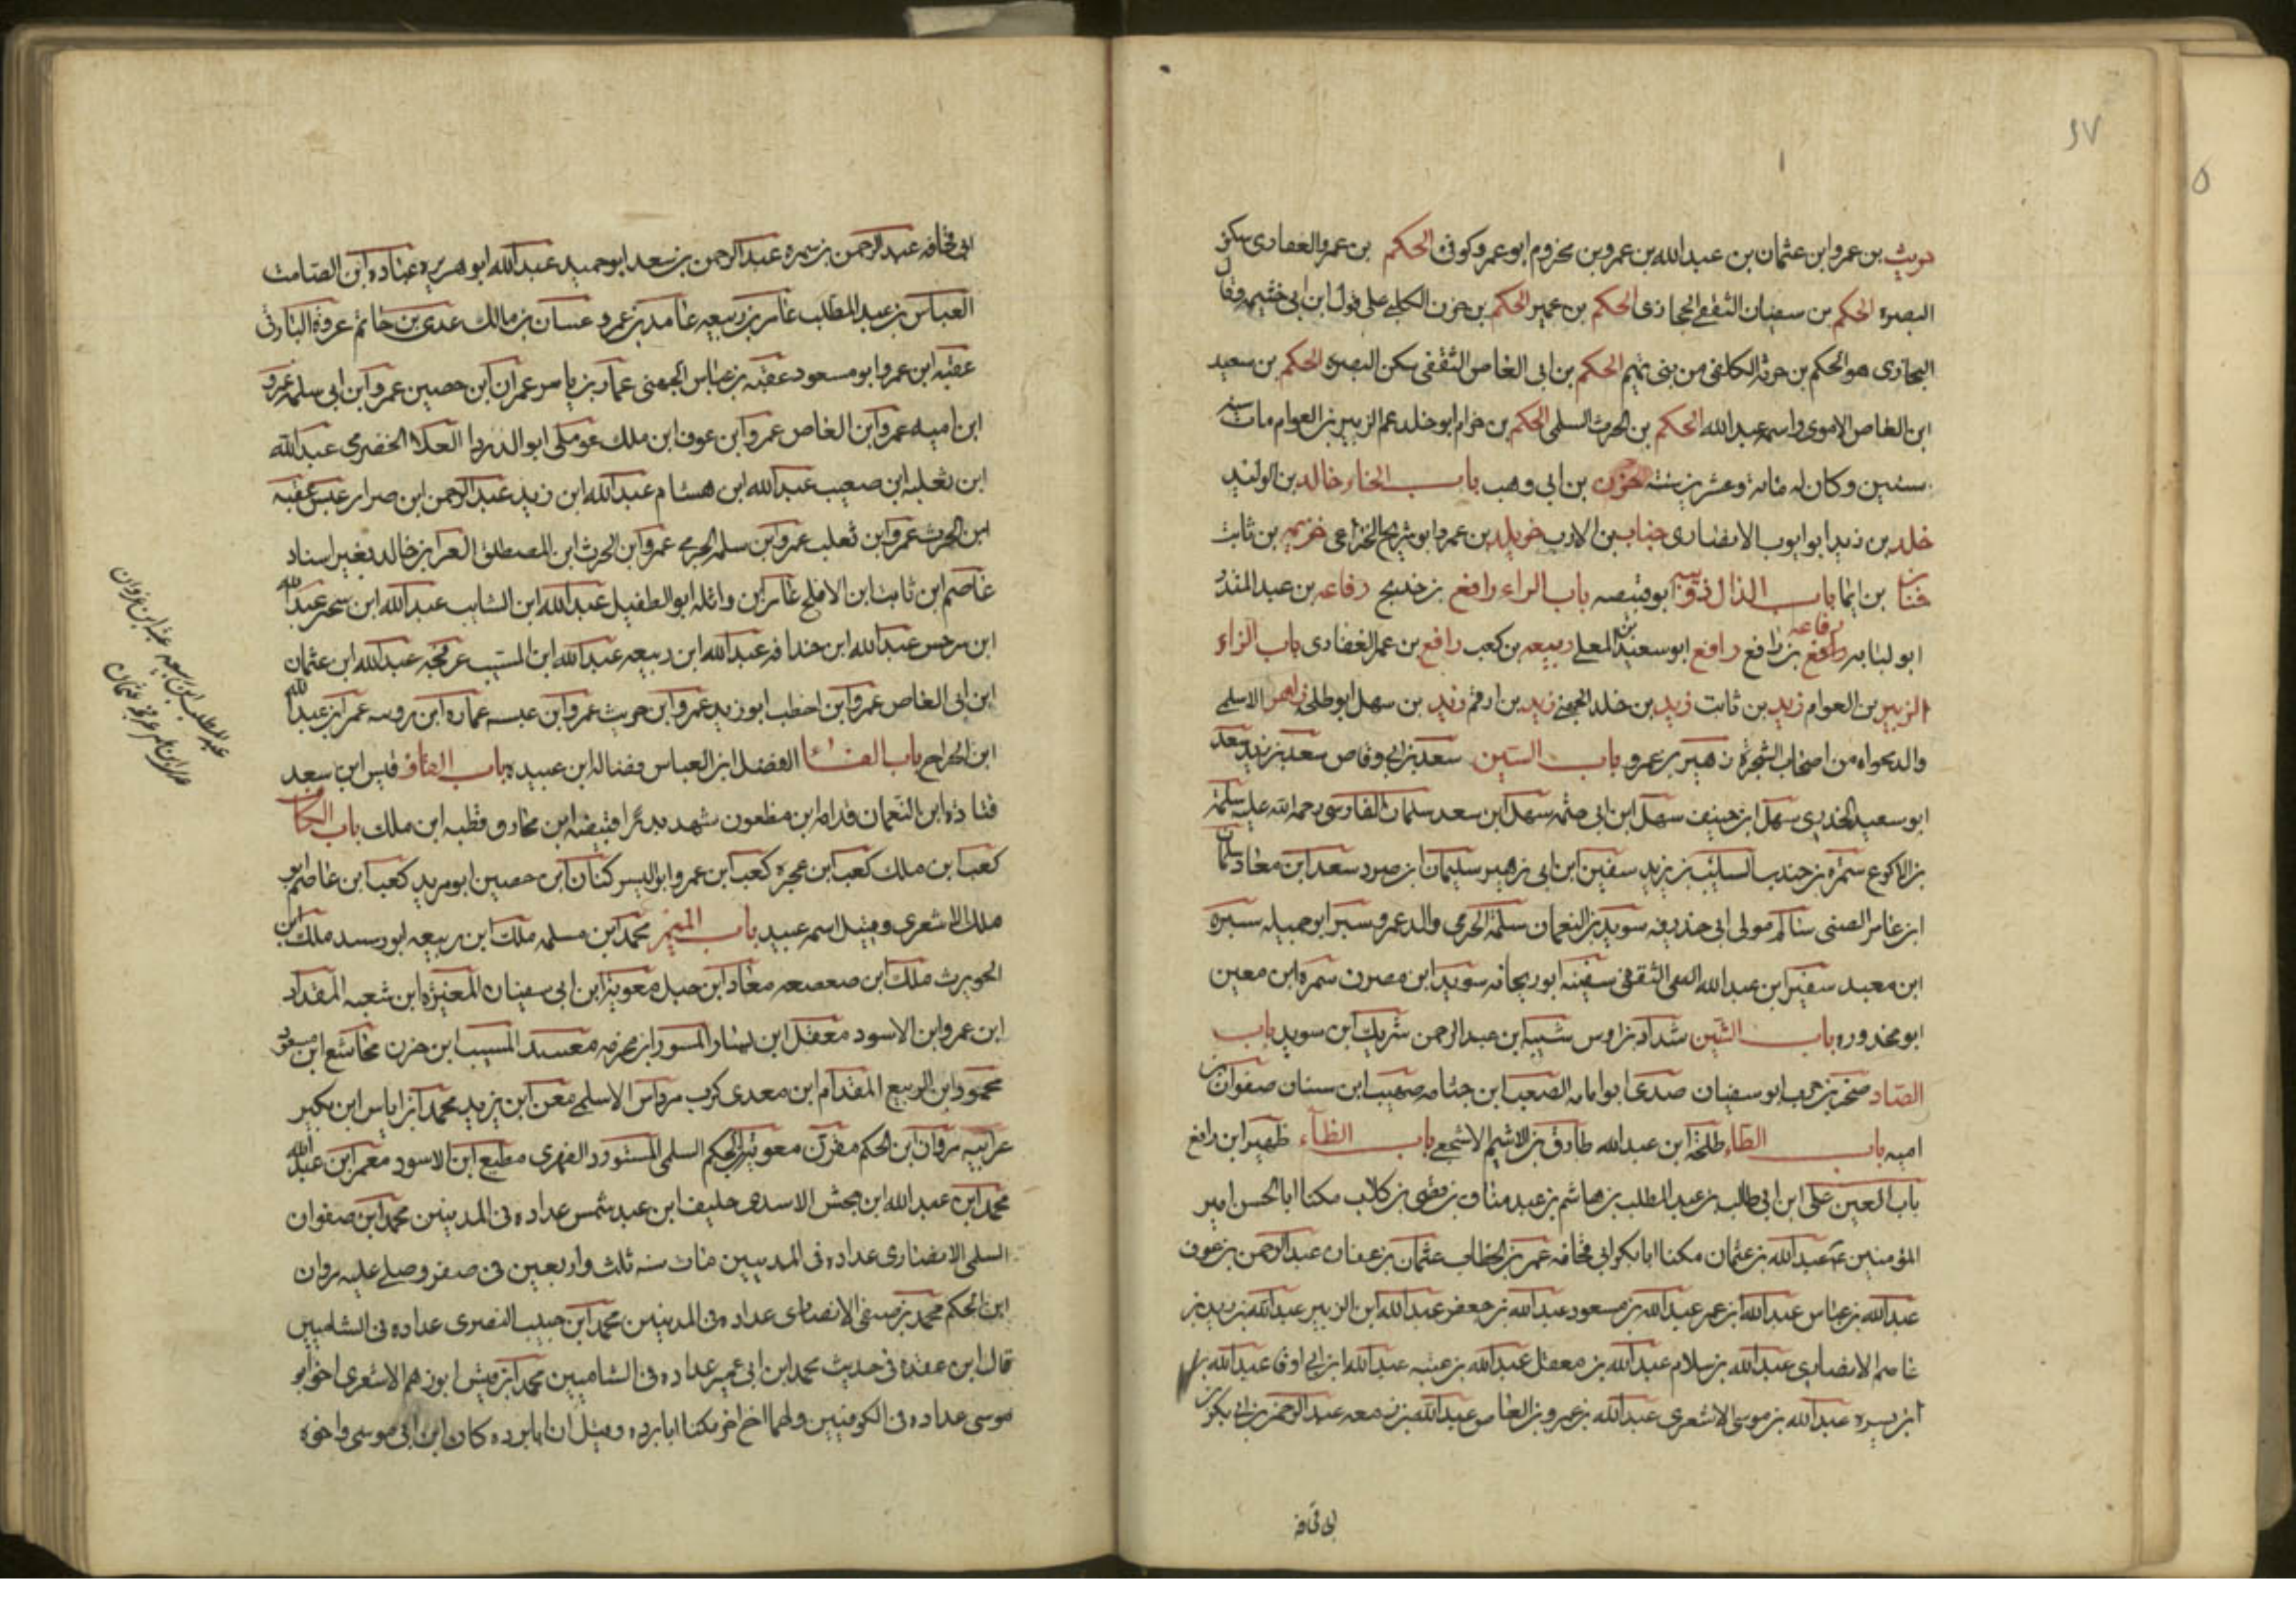 حريث بن عمرو ابن عثمان بن عبد الله بن عمرو بن مخزوم ابو عمرو كوفى الحكم بن عمرو الغفارى سكن
البصرة الحكم بن سفيان الثقفى الحجازى الحكم بن عمير الحكم بن حزن الكلبى على قول ابن ابى خثيمه وقال
البخارى هو الحكم بن حزن الكلفى من بنى تميم الحكم بن ابى العاص الثقفى سكن البصرة الحكم بن سعيد
ابن العاص الاموى واسمه عبد الله الحكم بن الحرث السلمى الحكم بن حزام ابو خلد عم الزبير بن العوام مات سنه
ستين وكان له مائة وعشرين سنة حزن بن ابى وهب باب الخاء خالد بن الوليد
خلد بن زيد ابو ايوب الانصارى خباب بن الارت خويلد بن عمرو ابو شريح الخزاعى خزيمه بن ثابت
بن ايما باب الذال ذويب ابو قبيصه باب الراء رافع بن خديج رفاعه بن عبد المنذر
ابو لبابه رفاعه بن رافع رافع ابو سعيد بن المعلى ربيعه بن كعب رافع بن عمر الغفارى باب الزاء
الزبير بن العوام زيد بن ثابت زيد بن خلد الجهنى زيد بن ارقم زيد بن سهل ابو طلحه زاهر الاسلمى
والد مجزاه من اصحاب الشجرة زهير بن عمرو باب السين سعد بن ابى وقاص سعد بن زيد سعد
ابو سعيد الخدرى سهل ابن حنيف سهل ابن ابى حثمه سهل ابن سعد سلمان الفارسى رحمة الله عليه سلمة
بن الاكوع سمرة بن جندب السايب بن يزيد سفين ابن ابى زهير سليمان ابن صرد سعد ابن معاذ سلمان
ابن عامر الضبى سالم مولى ابى حذيفه سويد بن النعمان سلمة الجرمى والد عمرو سنين ابو جميله سبرة
ابن معبد سفين ابن عبد الله الثقفى سفينه ابو ريحانه سويد ابن مقرن سمره ابن معين
ابو محذوره باب الشين شداد بن اوس شيبه ابن عبد الرحمن شريك ابن سويد باب
الصاد صخر بن حرب ابو سفيان صدى ابو امامه الصعب ابن جثامه صهيب ابن سنان صفوان بن
اميه باب الطاء طلحة ابن عبد الله طارق بن الاشيم الاشجعى باب الظاء ظهير ابن رافع
باب العين على ابن ابى طالب بن عبد المطلب بن هاشم بن عبد مناف بن قصى بن كلاب مكنا ابا الحسن امير
المؤمنين عبد الله بن عثمان مكنا ابا بكر ابى قحافه عمر بن الخطاب عثمان بن عفان عبد الرحمن بن عوف
عبد الله بن عباس عبد الله ابن عمر عبد الله بن مسعود عبد الله بن جعفر عبد الله ابن الزبير عبد الله بن زيد بن
عاصم الانصارى عبد الله بن سلام عبد الله بن معقل عبد الله بن عتبه عبد الله ابن ابى اوفا عبد الله بن
ابن بسره عبد الله بن موسى الاشعرى عبد الله بن عمرو بن العاص عبد الله بن زمعه عبد الرحمن بن ابى بكر بن
ابى قحافه
ابى قحافه عبد الرحمن بن سمره عبد الرحمن بن سعد ابو حميد عبد الله ابو هريره عباده ابن الصامت
العباس بن عبد المطلب عامر بن ربيعه عامد بن عمرو عسان بن مالك عدى بن حاتم عروة البارقى
عقبه ابن عمرو ابو مسعود عقبه بن عباس الجهنى عمار بن ياسر عمران ابن حصين عمرو ابن ابى سلمه عمرو
ابن اميه عمرو ابن العاص عمرو ابن عوف ابن ملك عويملى ابو الدردا العلا الحضرمى عبد الله
ابن ثعلبه ابن صعيب عبد الله ابن هشام عبد الله ابن زيد عبد الرحمن ابن صرار عبس عقبه
ابن الحرث عمرو ابن ثعلب عمرو ابن سلمه الجرمى عمرو ابن الحرث ابن المصطلق العدا بن خالد بغير اسناد
عاصم ابن ثابت ابن الافلح عامر ابن واثله ابو الطفيل عبد الله ابن السايب عبد الله ابن سحر عبد الله
ابن سرجس عبد الله ابن حذافه عبد الله ابن ربيعه عبد الله ابن المسيب عرفجه عبد الله ابن عثمان
ابن ابى العاص عمرو ابن اخطب ابو زيد عمرو ابن حريث عمرو ابن عبسه عماره ابن رويبه عمر ابن عبد الله
ابن الجراح باب الفاء الفضل ابن العباس فضاله ابن عبيده باب القاف قيس ابن سعد
قتادة ابن النعمان قدامه ابن مظعون شهد بدرا قبيصه ابن مخارق قطبه ابن ملك باب الكاف
كعب ابن ملك كعب ابن عجره كعب ابن عمرو ابو اليسر كنان ابن حصين ابو مريد كعب ابن عاصم ابو
ملك الاشعرى وقيل اسمه عبيد باب الميم محمد ابن مسلمه ملك ابن ربيعه ابو رسيد ملك ابن
الحويرث ملك ابن صعصعه معاذ ابن جبل معوية ابن ابى سفيان المغيرة ابن شعبه المقداد
ابن عمرو ابن الاسود معقل ابن يسار المسور ابن مخرمه معسد المسيب ابن حزن مجاشع ابن مسعود
محمود ابن الربيع المقدام ابن معدى كرب مرداس الاسلمى معن ابن يزيد محمد ابن اياس ابن بكير
مروان ابن الحكم مقرن معوية ابن الحكم السلمى المستورد الفهرى مطيع ابن الاسود معمر ابن عبد الله
محمد ابن عبد الله ابن جحش الاسدى حليف ابن عبد شمس عداده فى المدينين محمد ابن صفوان
السلمى الانصارى عداده فى المدينيين مات سنه ثلث واربعين فى صفر وصلى عليه مروان
ابن الحكم محمد بن صيفى الانصارى عداده فى المدينين محمد ابن حبيب النصرى عداده فى الشاميين
قال ابن عقده فى حديث محمد ابن ابى عمير عداده فى الشاميين محمد ابن قيس ابو رهم الاشعرى اخو ابو
موسى عداده فى الكوفيين ولهما اخ اخر يكنا ابا برده وقيل ان ابا برده كان ابن ابى موسى واخوه
عبد المطلب ابن ربيعه عتبه ابن غزوان